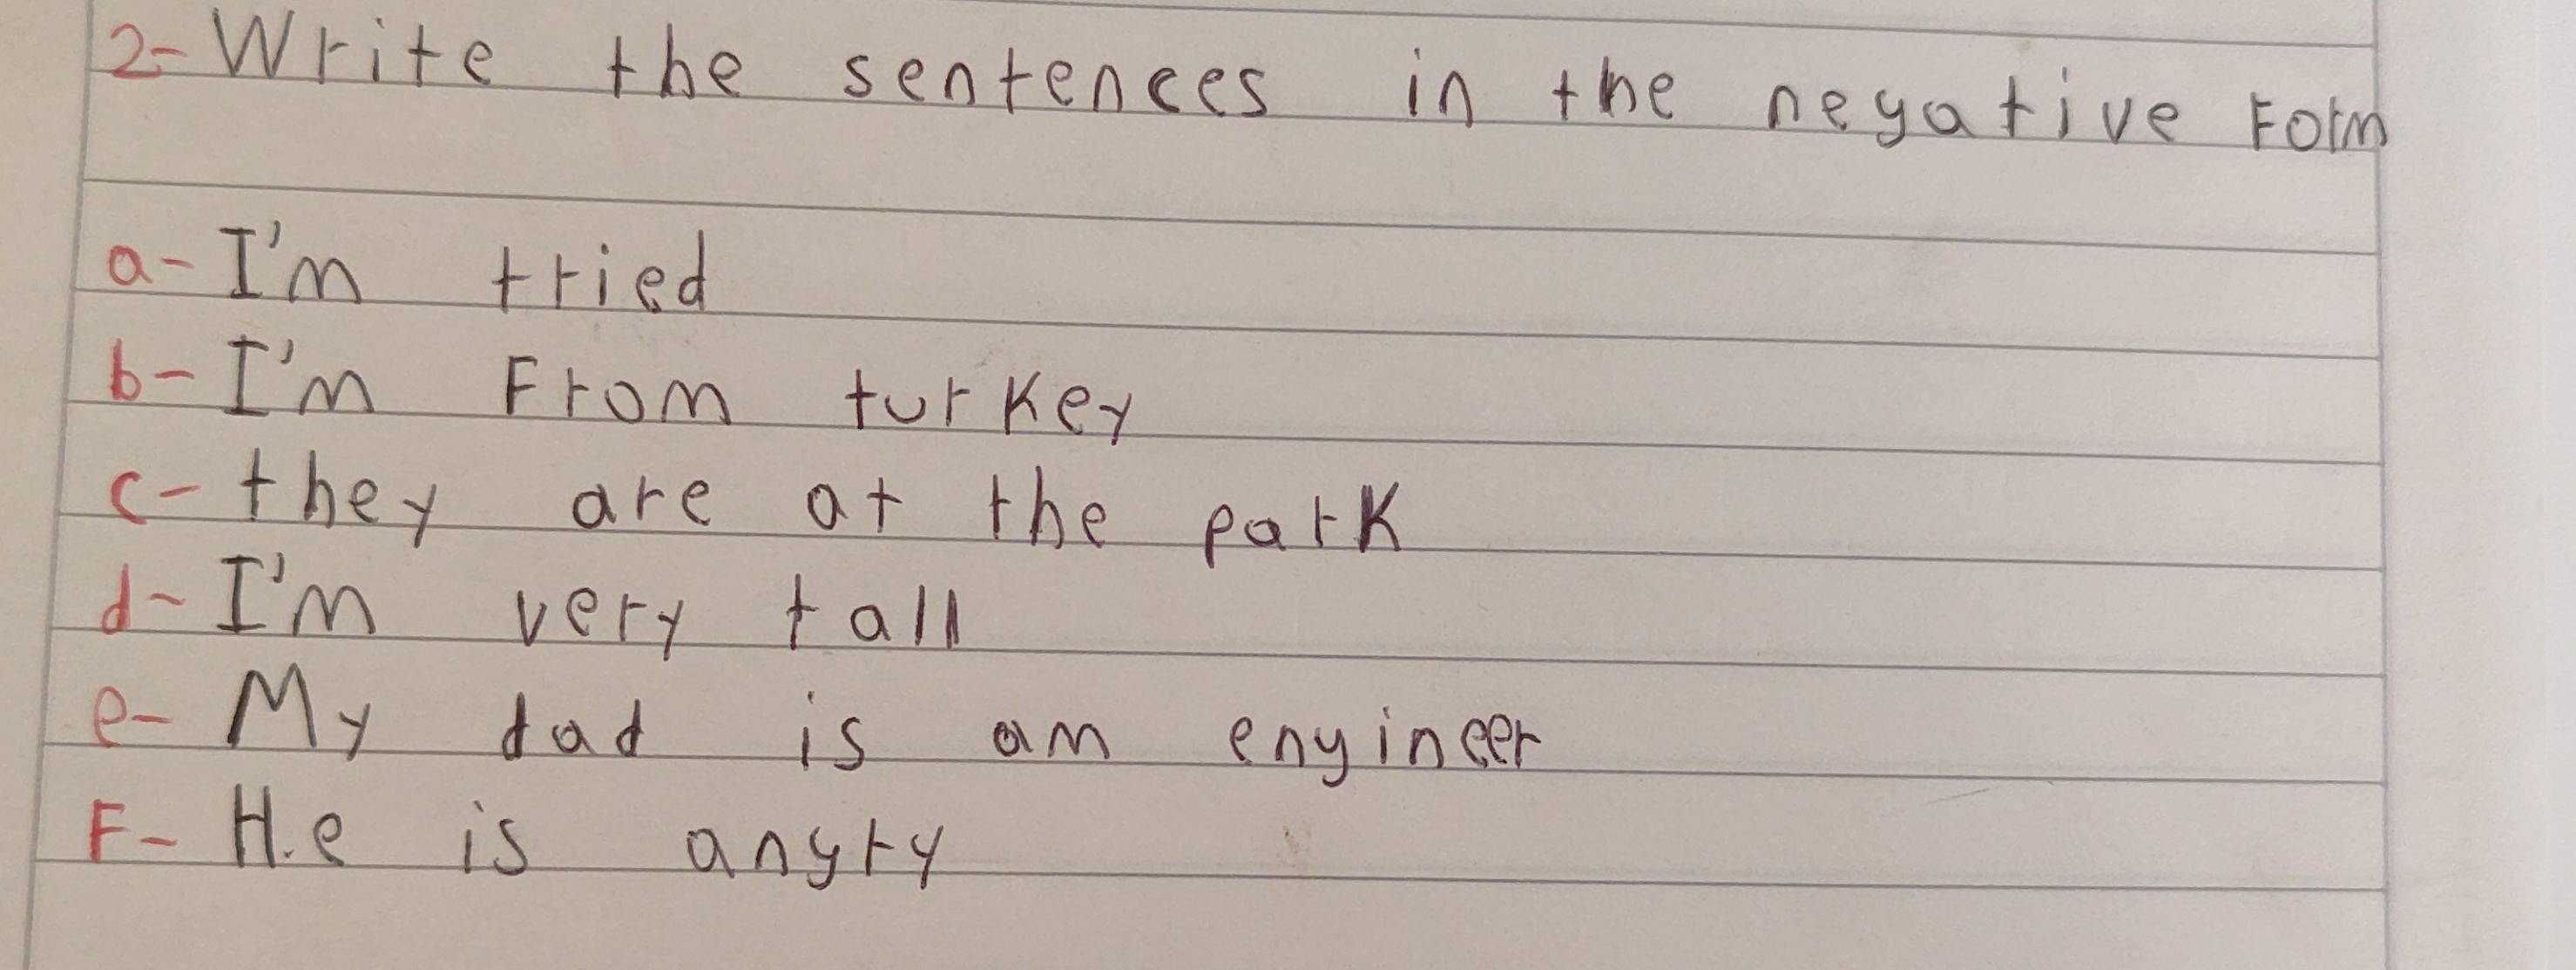 2- Write the sentences in the negative Form
a- I'm tried
b- I'm From turkey
c- they are at the park
d- I'm very tall
e- My dad is am engineer
F- He is angry